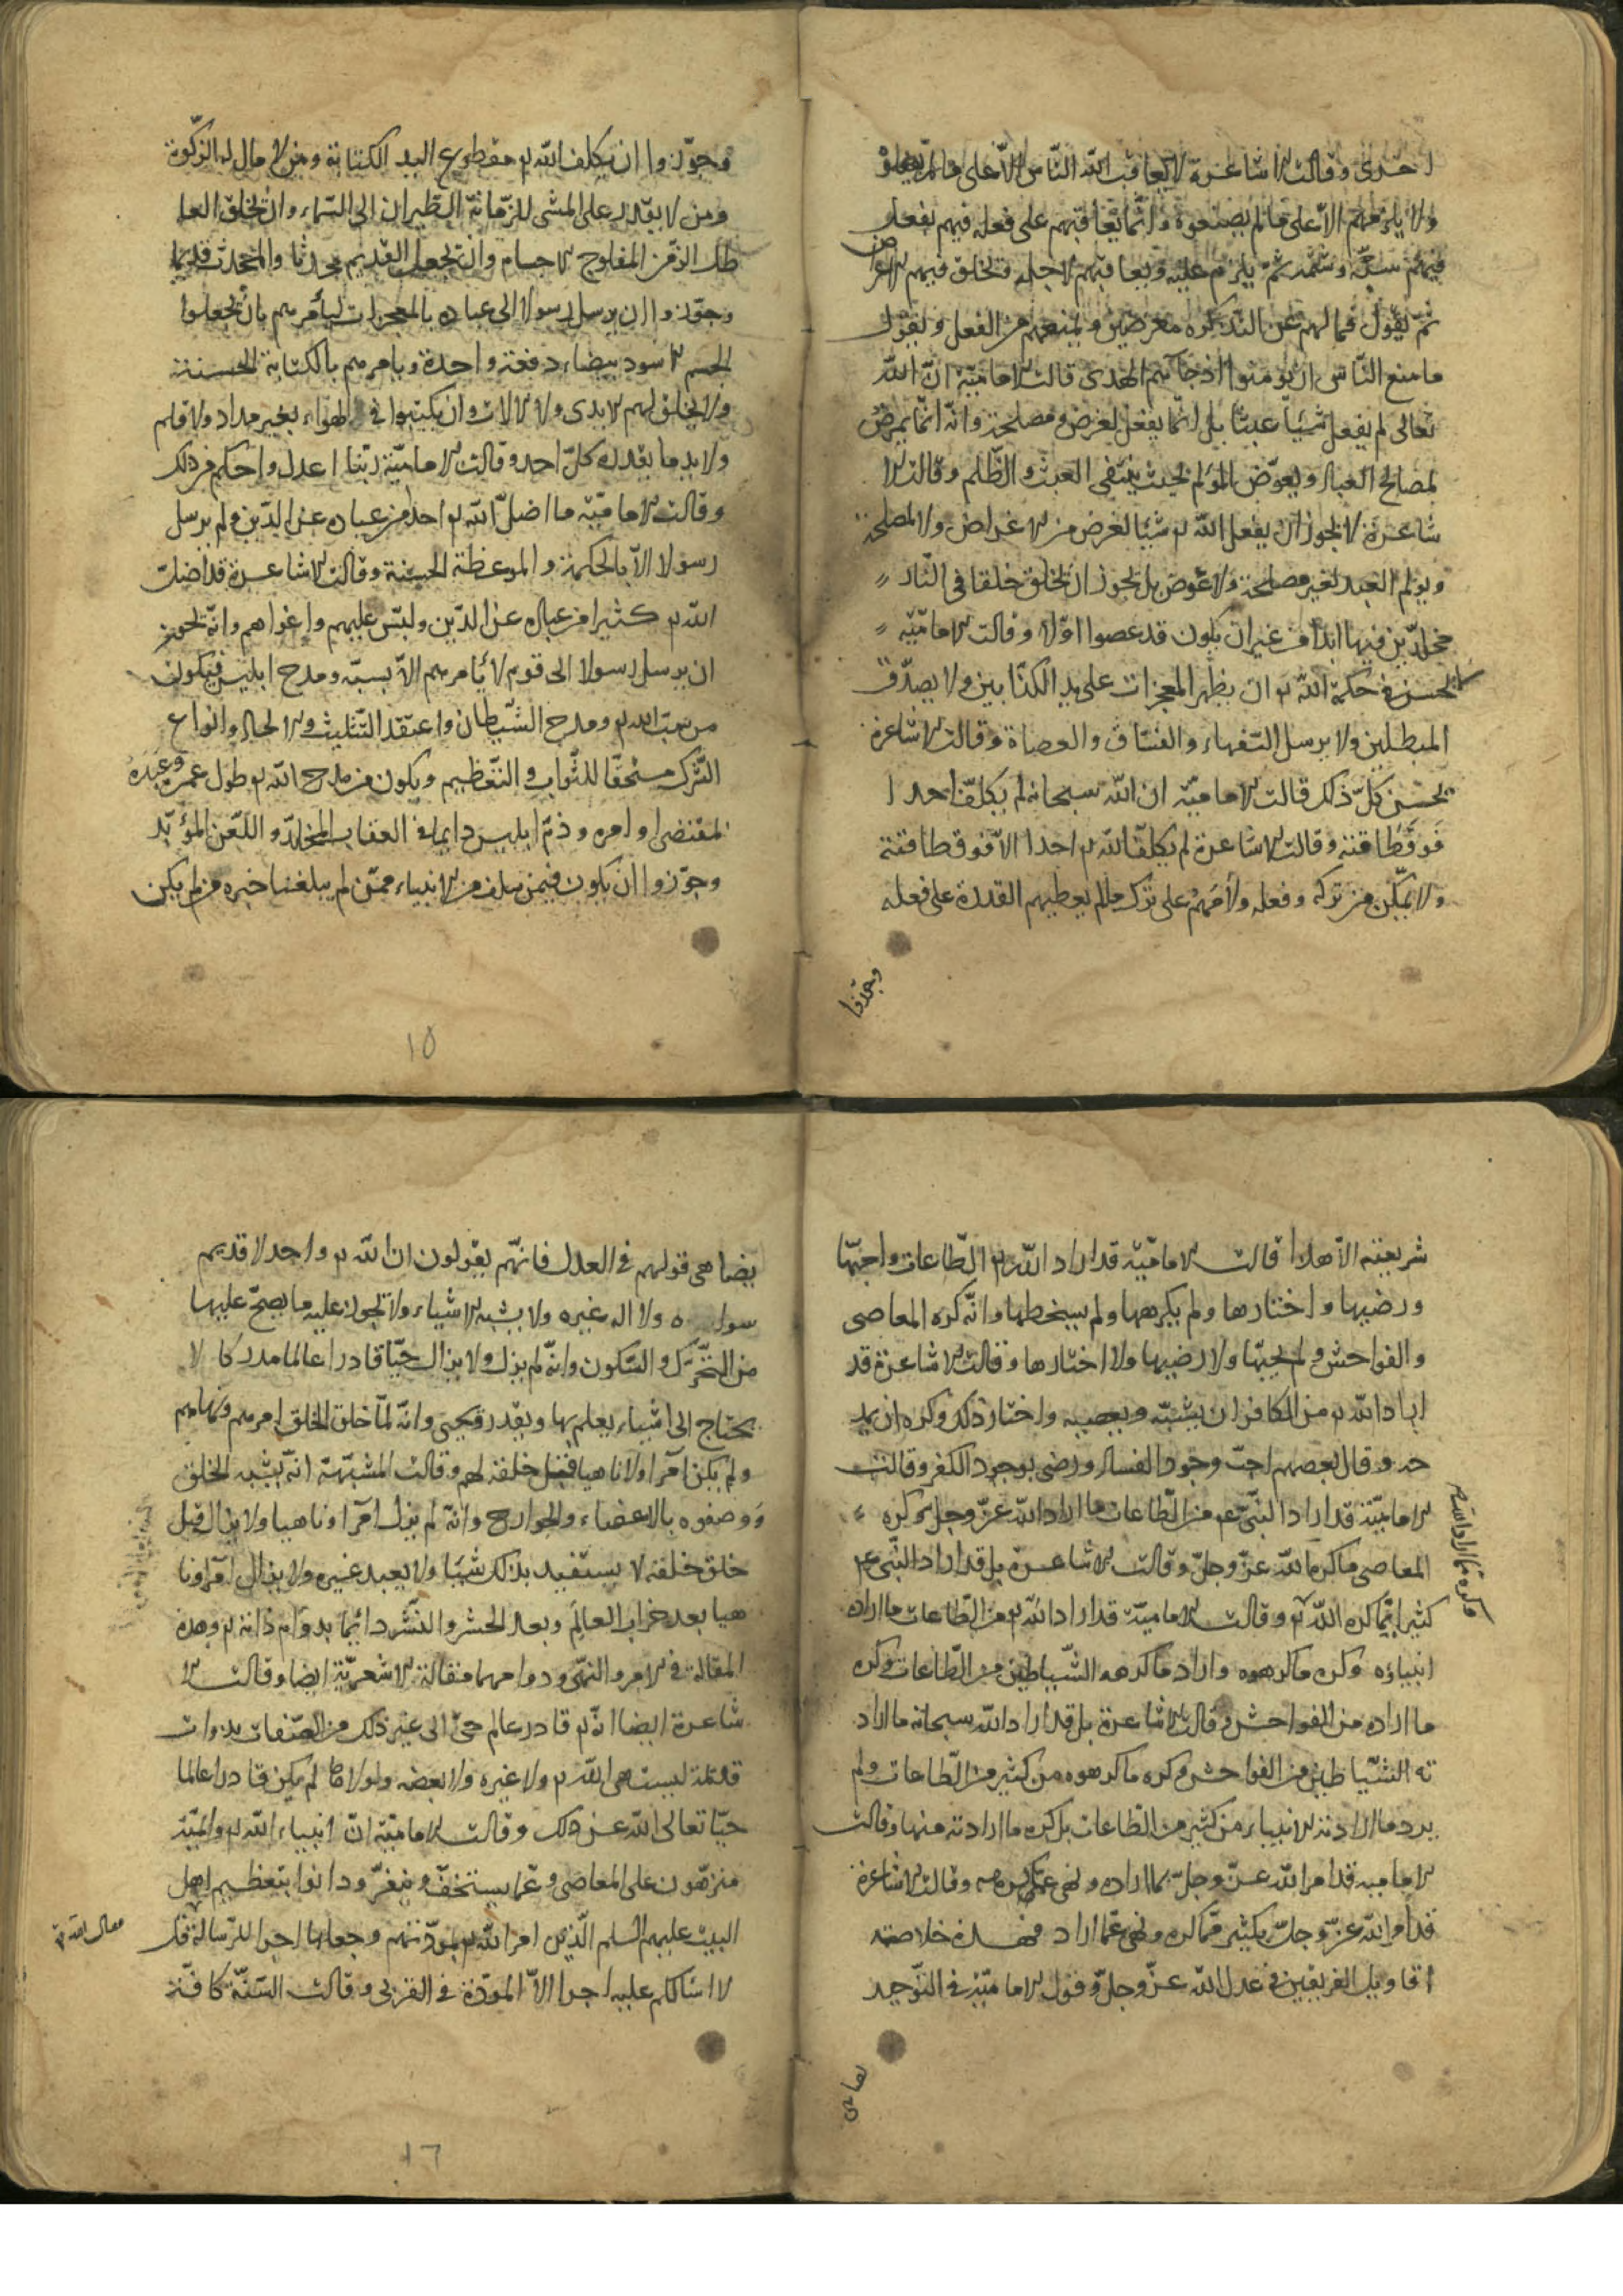 احزى وقالت الاشاعرة لا يعاقب الله الناس الا على ما لم يفعلو
ولا يلزمهم الا على ما لم يصنعوه وانما يعاقبهم على فعله فيهم يفعل
فيهم سبه وشتمه ثم يلزم عليه ويعاقبهم لاجله ويخلق فيهم الاعراض
ثم يقول فما لهم عن التذكره معرضين ويمنعهم من الفعل ويقول
ما منع الناس ان يؤمنوا اذ جاءهم الهدى قالت الامامية ان الله
تعالى لم يفعل شيئا عبثا بل انما يفعل لغرض ومصلحة وانه انما يمرض
لمصالح العباد ويعوض المولم بحيث ينتفى العبث والظلم وقالت الا
شاعرة لا يجوز ان يفعل الله شيئا لغرض من الاغراض ولا لمصلحة
ويولم العبد لغير مصلحة ولا عوض بل يجوز ان يخلق خلقا فى النار
مخلدين فيها ابدا من غير ان يكون قد عصوا اولا وقالت الامامية
لا يحسن فى حكمة الله ان يظهر المعجزات على يد الكذابين ولا يصدق
المبطلين ولا يرسل السفهاء والفساق والعصاة وقالت الاشاعرة
يحسن كل ذلك قالت الامامية ان الله سبحانه لم يكلف احدا
فوق طاقته وقالت الاشاعرة لم يكلف الله احدا الا فوق طاقته
ولا يمكن من تركه وفعله ولامهم على ترك ما لم يعطيهم القدرة على فعله
وجوزوا
وجوزوا ان يكلف الله مقطوع اليد الكتابة ومن لا مال له الزكوة
ومن لا يقدر على المشى للزمانة الطيران الى السماء وان يخلق العا
طل الزمن المفلوج الاجسام وان يجعل القديم محدثا والمحدث قديما
وجوزوا ان يرسل رسولا الى عباده بالمعجزات ليأمرهم بان يجعلوا
الجسم الاسود بيضاء دفعة واحدة ويامرهم بالكتابة الحسنة
ولا يخلق لهم الايدى ولا الالات وان يكتبوا فى الهواء بغير مداد ولا قلم
ولا يد ما يقدر كل احد وقالت الامامية ربنا اعدل واحكم من ذلك
وقالت الامامية ما اضل الله احدا من عباده عن الدين ولم يرسل
رسولا الا بالحكمة والموعظة الحسنة وقالت الاشاعرة قد اضلت
الله كثيرا من عباده عن الدين ولبس عليهم واغواهم وانه يجوز
ان يرسل رسولا الى قوم لا يأمرهم الا بسبه ومدح ابليس فيكون
من سب الله ومدح الشيطان واعتقد التثليث والالحاد وانواع
الشرك مستحقا للثواب والتعظيم ويكون من مدح الله طول عمره وعبده
لمقتضى اوامره وذم ابليس دايما فى العقاب المخلد واللعن المؤبد
وجوزوا ان يكون فيمن سلف من الانبياء ممن لم يبلغنا خبره من لم يكن
١٥
شريعته الا هذا قالت الامامية قد اراد الله الطاعات واحبها
ورضيها واختارها ولم يكرهها ولم يسخطها وانه كره المعاصى
والفواحش ولم يحبها ولا رضيها ولا اختارها وقالت الاشاعرة قد
اراد الله من الكافر ان يسبه ويعصيه واختار ذلك وكره ان يمد
حه وقال بعضهم احب وجود الفساد ورضى بوجود الكفر وقالت
الامامية قد اراد النبى عم من الطاعات ما اراد الله عز وجل كره
المعاصى ما كره الله عز وجل وقالت الاشاعرة بل قد اراد النبى عم
كثيرا مما كره الله وقالت الامامية قد اراد الله من الطاعات ما اراده
انبياؤه وكره ما كرهوه واراد ما كرهه الشياطين من الطاعات وكره
ما اراده من الفواحش وقالت الاشاعرة بل قد اراد الله سبحانه ما اراد
ته الشياطين من الفواحش وكره ما كرهوه من كثير من الطاعات ولم
يرد ما ارادته الانبياء من كثير من الطاعات بل كره ما ارادته منها وقالت
الامامية قد امر الله عز وجل بما اراده ونهى عما كرهه وقالت الاشاعرة
قد امر الله عز وجل بكثير مما كره ونهى عما اراد فهذه خلاصة
اقاويل الفريقين فى عدل الله عز وجل وقول الامامية فى التوحيد
يضاهى
يضاهى قولهم فى العدل فانهم يقولون ان الله واحد لا قديم
سواه ولا اله غيره ولا يشبه الاشياء ولا يجوز عليه ما يصح عليها
من التحرك والسكون وانه لم يزل ولا يزال حيا قادرا عالما مدركا لا
يحتاج الى اشياء يعلم بها ويقدر ويحيى وانه لما خلق الخلق امرهم ونهاهم
ولم يكن آمرا ولا ناهيا قبل خلقه لهم وقالت المشبهة انه يشبه الخلق
ووصفوه بالاعضاء والجوارح وانه لم يزل آمرا وناهيا ولا يزال قبل
خلق خلقه لا يستفيد بذلك شيئا ولا يعبد غيره ولا يزال آمرا ونا
هيا بعد خراب العالم وبعد الحشر والنشر دائما بدوام ذاته وهذه
المقالة فى الامر والنهى ودوامهما مقالة الاشعرية ايضا وقالت الا
شاعرة ايضا انه قادر عالم حى الى غير ذلك من الصفات بذوات
قديمة ليست هى الله ولا غيره ولا بعضه ولولاها لم يكن قادرا عالما
حيا تعالى الله عن ذلك وقالت الامامية ان انبياء الله والائمة
منزهون على المعاصى وعما يستخف وينفر ودانوا بتعظيم اهل
البيت عليهم السلم الذين امر الله بمودتهم وجعلها اجر الرسالة قل
لا اسالكم عليه اجرا الا المودة فى القربى وقالت السنة كافة
١٦